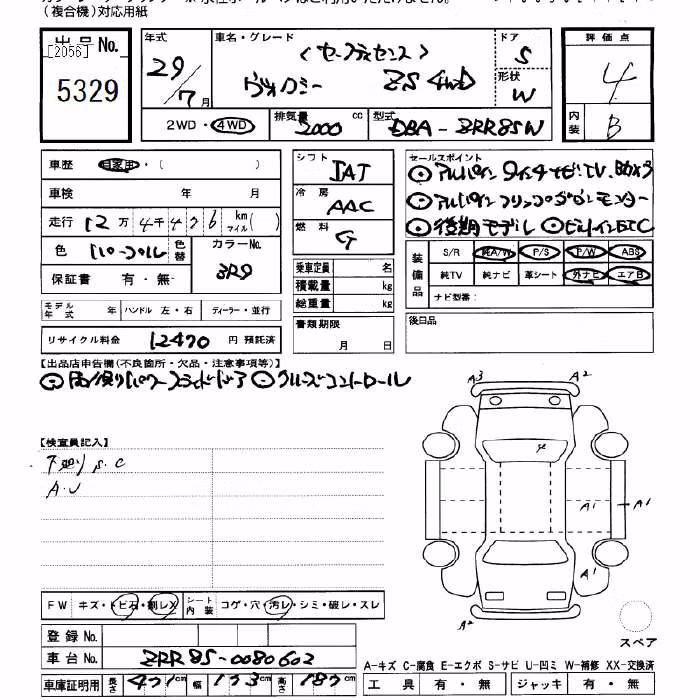 (複合機)対応用紙
出品No.
[2056]
5329
年式
29/7月
車名・グレード
(セーフティセンス)
ヴォクシー ZS 4WD
ドア
5
形状
W
評価点
4
内装
B
2WD・4WD
排気量
2000 cc
型式
DBA-ZRR85W
車歴 自家用・( )
車検 年 月
走行 12万4千4 7 6 km マイル( )
色
色替
カラーNo.
3R9
保証書 有・無
モデル年式 年 ハンドル 左・右 ディーラー・並行
リサイクル料金 12470 円 預託済
シフト
IAT
冷房
AAC
燃料
G
乗車定員 名
積載量 kg
総重量 kg
書類期限
月 日
セールスポイント
◎アルパイン9インチナビTV, BOX
◎アルパインフリップダウンモニター
◎後期モデル ◎ビルトインETC
装備品
S/R 純A/W P/S P/W ABS
純TV 純ナビ 革シート 外ナビ エアB
ナビ型番:
後日品
【出品店申告欄(不良箇所・欠品・注意事項等)】
◎両側パワースライドドア ◎クルーズコントロール
【検査員記入】
下廻りS.C
A.U
A3 A2
A1 A1
A1
A2
スペア
FW キズ・トビ石・割レX シート内装 コゲ・穴・汚レ・シミ・破レ・スレ
登録No.
車台No. ZRR85-0080602
車庫証明用 長さ 471cm 幅 173cm 高さ 187cm
A-キズ C-腐食 E-エクボ S-サビ U-凹ミ W-補修 XX-交換済
工具 有・無 ジャッキ 有・無